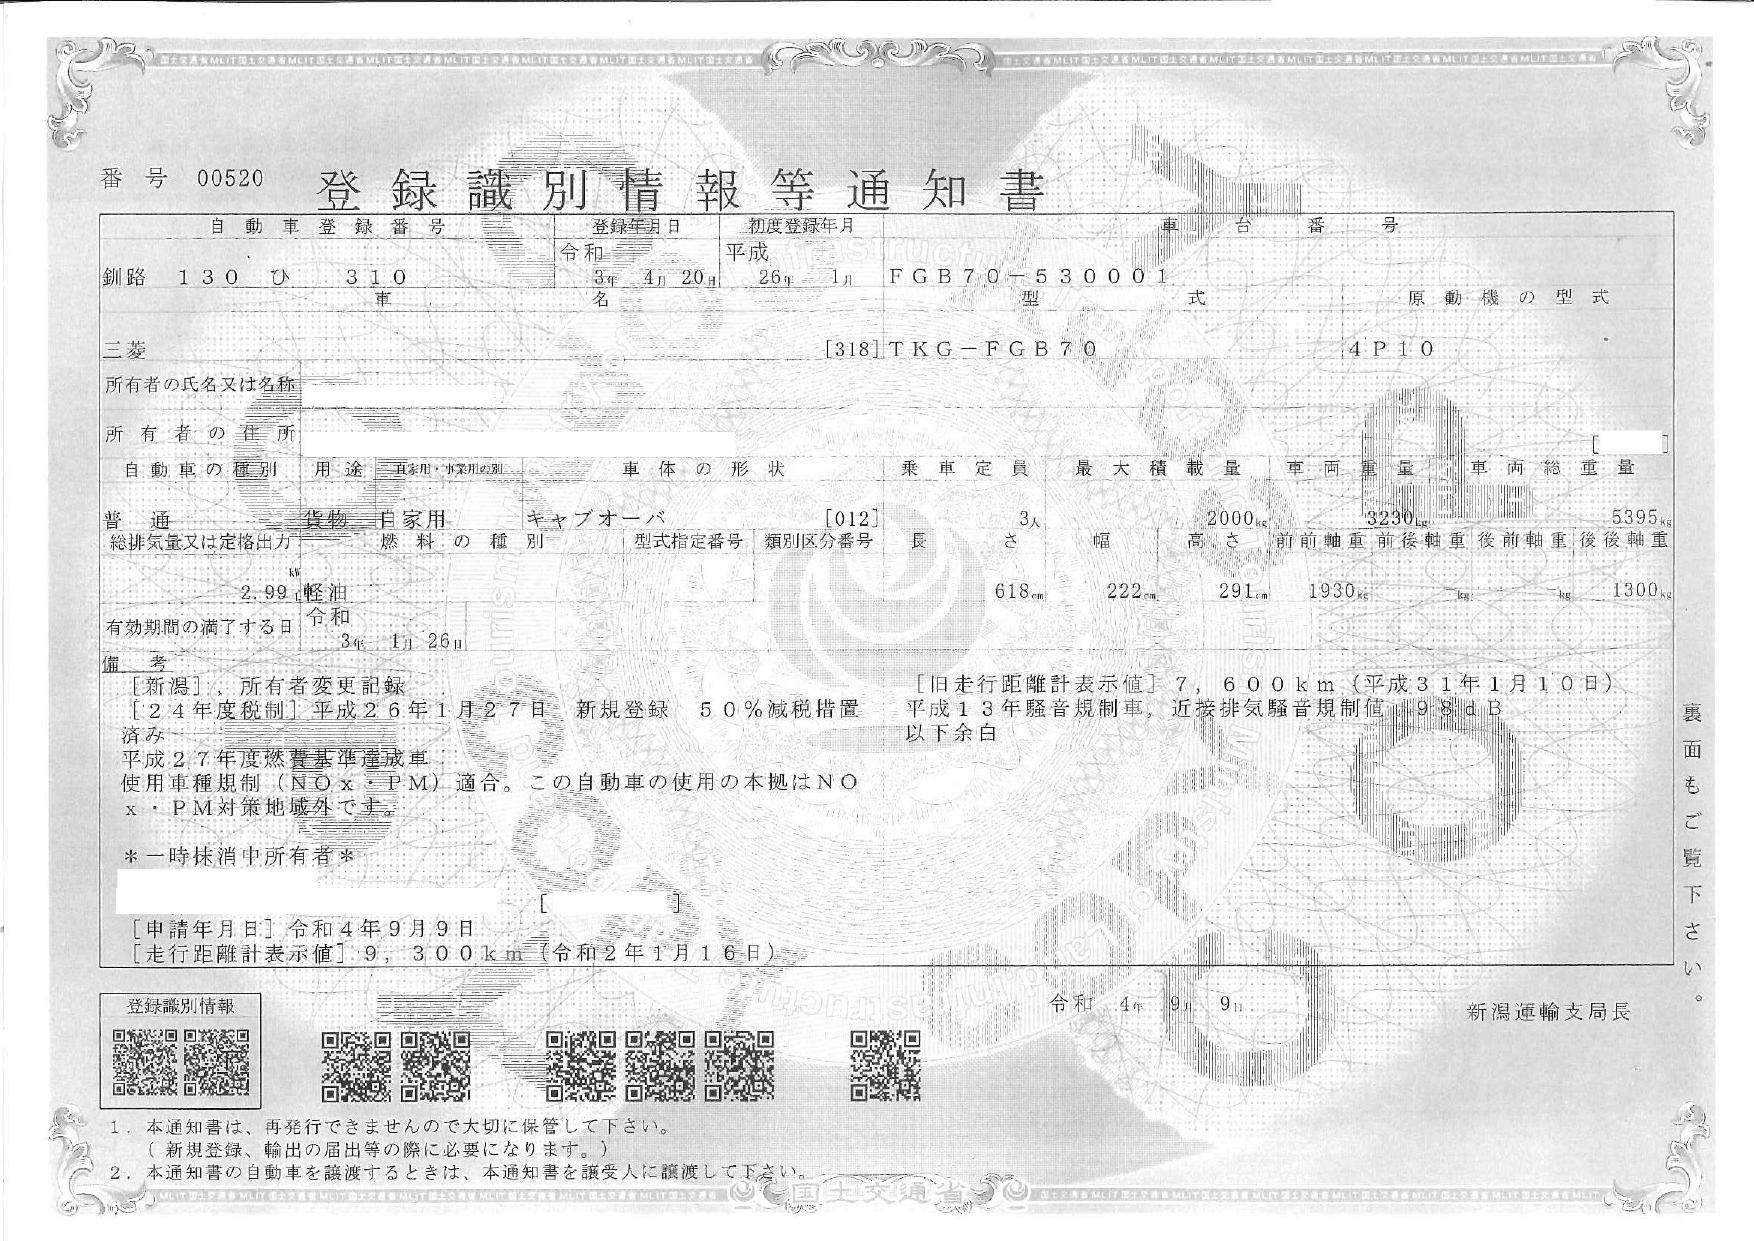 番号 00520 登録識別情報等通知書
自動車登録番号 登録年月日 初度登録年月 車台番号
令和 平成
釧路 130 ひ 310 3年 4月 20日 26年 1月 FGB70-530001
車名 型式 原動機の型式
三菱 [318] TKG-FGB70 4P10
所有者の氏名又は名称
所有者の住所 [ ]
自動車の種別 用途 自家用・事業用の別 車体の形状 乗車定員 最大積載量 車両重量 車両総重量
普通 貨物 自家用 キャブオーバ [012] 3人 2000kg 3230kg 5395kg
総排気量又は定格出力 燃料の種別 型式指定番号 類別区分番号 長さ 幅 高さ 前前軸重 前後軸重 後前軸重 後後軸重
kW
2.99L 軽油 618cm 222cm 291cm 1930kg -kg -kg 1300kg
有効期間の満了する日 令和
3年 1月 26日
備考
[新潟], 所有者変更記録
[24年度税制] 平成26年1月27日 新規登録 50%減税措置
済み
平成27年度燃費基準達成車
使用車種規制(NOx・PM)適合。この自動車の使用の本拠はNO
x・PM対策地域外です。
*一時抹消中所有者*
[ ]
[申請年月日] 令和4年9月9日
[走行距離計表示値] 9,300km (令和2年1月16日)
[旧走行距離計表示値] 7,600km (平成31年1月10日)
平成13年騒音規制車, 近接排気騒音規制値, 98dB
以下余白
裏面もご覧下さい。
登録識別情報
令和 4年 9月 9日
新潟運輸支局長
1. 本通知書は、再発行できませんので大切に保管して下さい。
(新規登録、輸出の届出等の際に必要になります。)
2. 本通知書の自動車を譲渡するときは、本通知書を譲受人に譲渡して下さい。
国土交通省